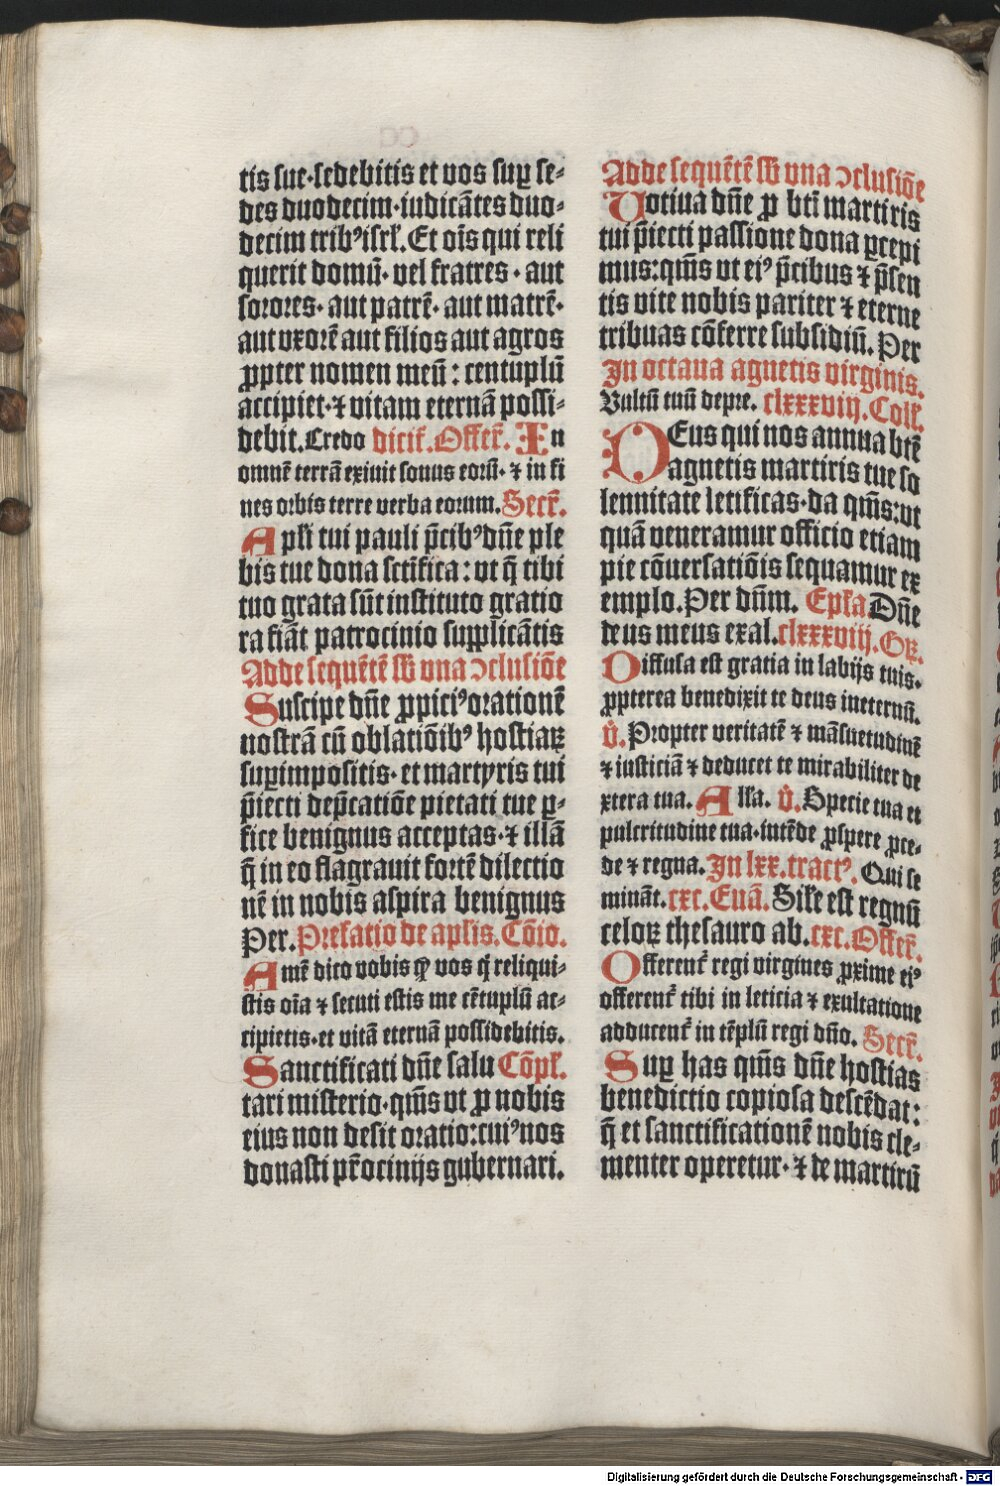 tis sue·sedebitis et vos suꝑ se⸗
des duodecim·iudicãtes duo⸗
decim tribꝰ isrł. Et oĩs qui reli
querit domũ· vel fratres· aut
sorores· aut patrẽ· aut matrẽ·
aut vxorẽ aut filios aut agros
ꝓpter nomen meũ: centuplũ
accipiet·⁊ vitam eternã possi⸗
debit. Credo dicit̃. Offer̃. In
omnẽ terrã exiuit sonus eorũ·⁊ in fi
nes orbis terre verba eorum. Secr̃.
Apłi tui pauli p̃cibꝰ dñe ple
bis tue dona sctĩfica: vt q̃ tibi
tuo grata sũt instituto gratio
ra fiãt patrocinio supplicãtis
Adde sequẽtẽ sb̃ vna ↄclusiõe
Suscipe dñe ꝓpiciꝰ orationẽ
nostrã cũ oblatiõibꝰ hostiaꝝ
suꝑimpositis· et martyris tui
p̃iecti dep̃catiõe pietati tue ꝑ⸗
fice benignus acceptas·⁊ illã
q̃ in eo flagrauit fortẽ dilectio
nẽ in nobis aspira benignus
Per. Prefatio de aplis. Cõio.
Amẽ dico vobis ꝙ vos q̃ reliqui⸗
stis oĩa ⁊ secuti estis me cẽtuplũ ac⸗
cipietis·et vitã eternã possidebitis.
Sanctificati dñe salu Cõpł.
tari misterio·qm̃s vt ꝓ nobis
eius non desit oratio:cuiꝰ nos
donasti pr̃ocinijs gubernari.
Adde sequẽtẽ sb̃ vna ↄclusiõe
Uotiua dñe ꝓ bt̃i martiris
tui p̃iecti passione dona ꝑcepi
mus:qm̃s vt eiꝰ p̃cibus ⁊ p̃sen
tis vite nobis pariter ⁊ eterne
tribuas cõferre subsidiũ. Per
In octaua agnetis virginis.
Vultũ tuũ depre. clxxxviij. Coll̃.
DEus qui nos annua btẽ
agnetis martiris tue so
lennitate letificas·da qm̃s:vt
quã veneramur officio etiam
pie cõuersatiõis sequamur ex
emplo. Per dñm. Epła Dñe
deus meus exal. clxxxviij. GR̃.
Diffusa est gratia in labijs tuis·
ꝓpterea benedixit te deus ineternũ.
V̊. Propter veritatẽ ⁊ mãsuetudinẽ
⁊ iusticiã ⁊ deducet te mirabiliter de
xtera tua. Alła. V̊. Specie tua et
pulcritudine tua·intẽde ꝓspere ꝓce⸗
de ⁊ regna. In lxx. tractꝰ. Qui se
minãt. cxc. Euã. Sile est regnũ
celoꝝ thesauro ab. cxc. Offer̃.
Offerent̃ regi virgines ꝓxime eiꝰ
offerent̃ tibi in leticia ⁊ exultatione
adducent̃ in tẽplũ regi dño. Secr̃.
Suꝑ has qm̃s dñe hostias
benedictio copiosa descẽdat:
q̃ et sanctificationẽ nobis cle⸗
menter operetur·⁊ de martirũ
Digitalisierung gefördert durch die Deutsche Forschungsgemeinschaft - DFG